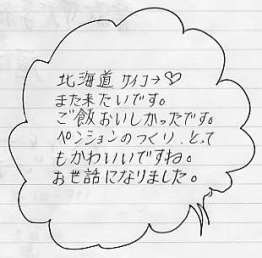 北海道 サイコ→♡
また来たいです。
ご飯おいしかったです。
ペンションのつくり、とって
もかわいいですね。
お世話になりました。